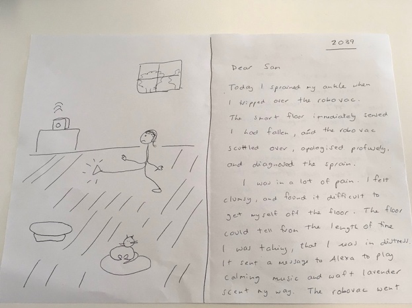 2039
Dear Sam
Today I sprained my ankle when
I tripped over the robovac.
The smart floor immediately sensed
I had fallen, and the robovac
scuttled over, apologised profusely,
and diagnosed the sprain.
I was in a lot of pain. I felt
clumsy, and found it difficult to
get myself off the floor. The floor
could tell from the length of time
I was taking, that I was in distress
It sent a message to Alexa to play
calming music and waft lavender
scent my way. The robovac went